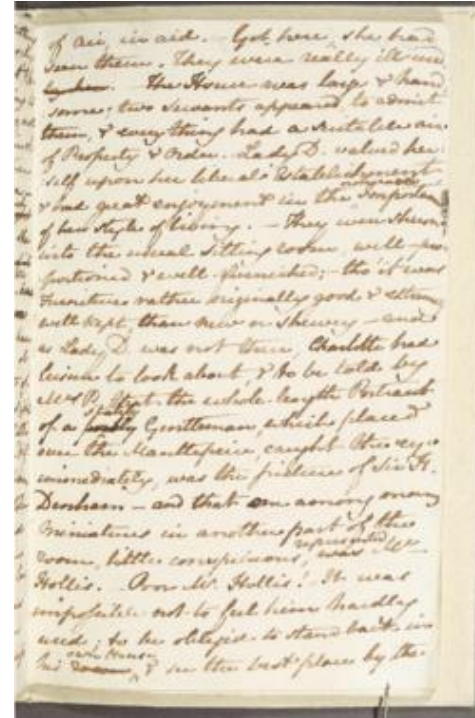 of air, in aid. — Got here, she had
seen them. They were really ill used
The House was large & hand
some; two Servants appeared to admit
them, & every thing had a suitable air
of Property & Order. Lady D. valued her
self upon her liberal Establishment
& had great enjoyment in the importance
of her style of living. — They were shewn
into the usual sitting room, well-pro
portioned & well-furnished; — tho' it was
Furniture rather originally good & extremely
well kept, than new or shewey — and
as Lady D. was not there, Charlotte had
leisure to look about, & to be told by
Mrs P. that the whole-length Portrait
of a stately Gentleman, which placed
over the Mantlepeice, caught the eye
immediately, was the picture of Sir H.
Denham — and that one among many
Miniatures in another part of the
room, little conspicuous, represented Mr
Hollis. Poor Mr Hollis! It was
impossible not to feel him hardly
used; to be obliged to stand back in
his own House & see the best place by the